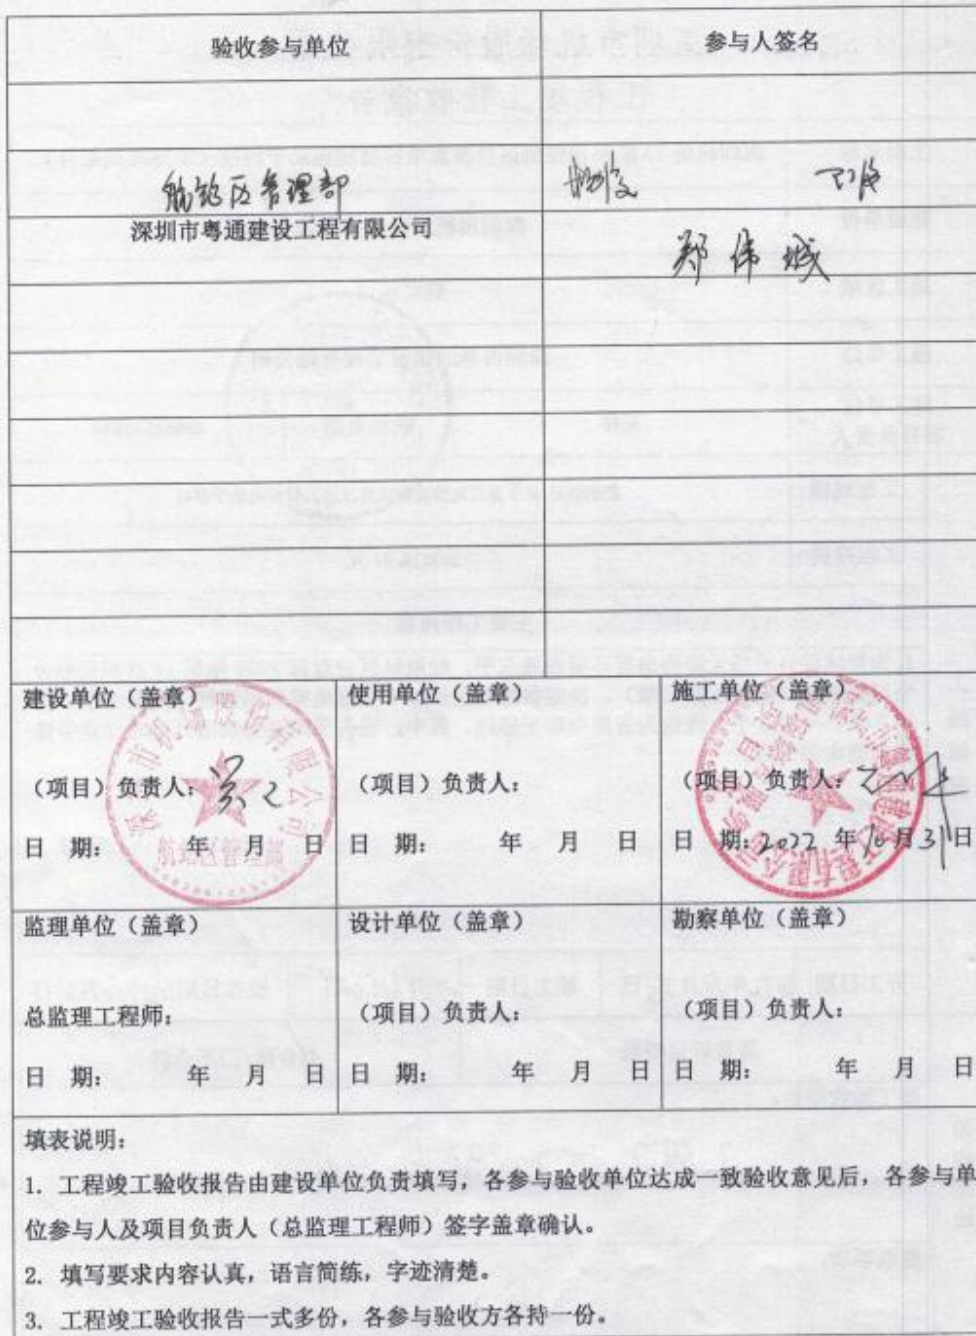 验收参与单位 参与人签名
航站区管理部
深圳市粤通建设工程有限公司
郑伟城
建设单位（盖章） 使用单位（盖章） 施工单位（盖章）
（项目）负责人： （项目）负责人： （项目）负责人：
日 期： 年 月 日 日 期： 年 月 日 日 期：2022 年 10 月 31 日
航站区管理部
监理单位（盖章） 设计单位（盖章） 勘察单位（盖章）
总监理工程师： （项目）负责人： （项目）负责人：
日 期： 年 月 日 日 期： 年 月 日 日 期： 年 月 日
填表说明：
1. 工程竣工验收报告由建设单位负责填写，各参与验收单位达成一致验收意见后，各参与单
位参与人及项目负责人（总监理工程师）签字盖章确认。
2. 填写要求内容认真，语言简练，字迹清楚。
3. 工程竣工验收报告一式多份，各参与验收方各持一份。